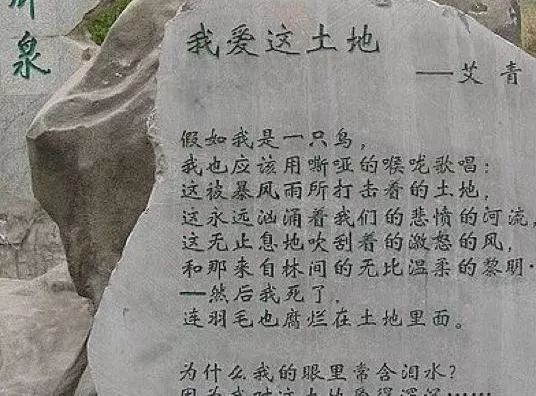 泉
我爱这土地
——艾青
假如我是一只鸟，
我也应该用嘶哑的喉咙歌唱：
这被暴风雨所打击着的土地，
这永远汹涌着我们的悲愤的河流，
这无止息地吹刮着的激怒的风，
和那来自林间的无比温柔的黎明·
—然后我死了，
连羽毛也腐烂在土地里面。
为什么我的眼里常含泪水？
因为我对这土地爱得深沉……